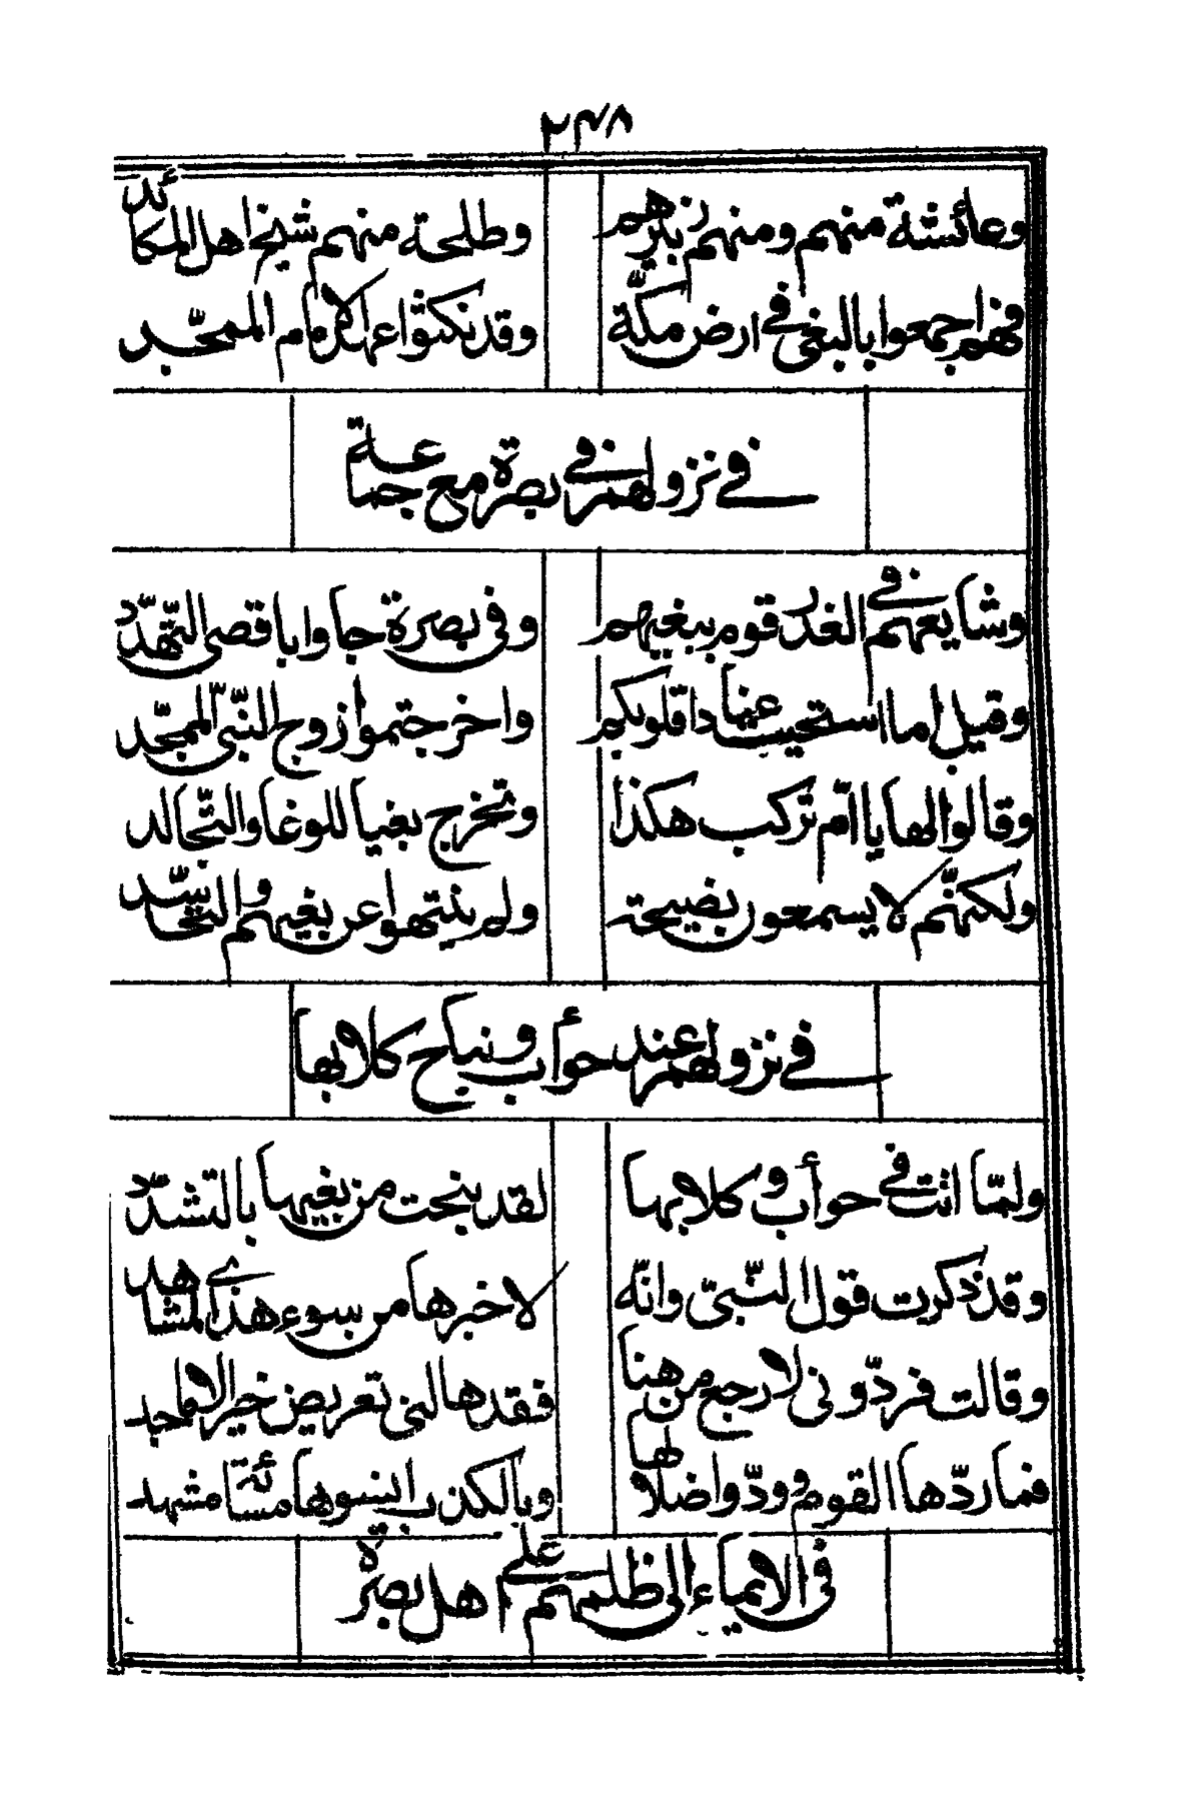 ٢٤٨
وعائشة منهم ومنهم زبيرهم وطلحة منهم شيخ اهل المكائد
فهم اجمعوا بالبغي في ارض مكّة وقد نكثوا عهد الامام الممجّد
في نزولهم في بصرة مع جماعة
وشايعهم في الغدر قوم ببغيهم وفي بصرة جاوا باقصى التهدّد
وقيل اما استحييت عينا قلوبكم واخرجتموا زوج النبّي الممجّد
وقالوا لها يا امّ تركب هكذا وتخرج بغيا للوغا والتّجالد
ولكنّهم لا يسمعون نصيحة ولم ينتهوا عن بغيهم والتحاسّد
في نزولهم عند حوأب ونبايح كلابها
ولمّا اتت في حوأب وكلابها لقد نبحت من بغيها بالتشدّد
وقد ذكرت قول النّبيّ وانّه لاخبرها من سوء هذي المشاهد
وقالت فردّوني لارجع من هنا فقد هالني تعريض خير الاماجد
فما ردّها القوم وودّوا ضلالها وبالكذب اينسوها مسّائة مشهد
في الايماء الى ظلمهم على اهل بصرة